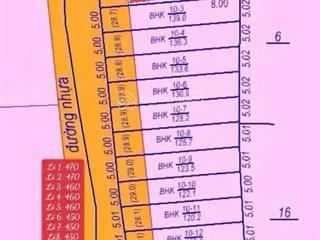 8.00
10-3
BHK 139.0
(28.7)
5.00
5.02
10-4
BHK 136.3
(28.8)
5.00
5.02
6
10-5
BHK 133.6
(28.8)
5.00
5.02
10-6
BHK 130.9
(28.9)
5.00
5.02
đường nhựa
10-7
BHK 128.2
(28.9)
5.00
5.02
10-8
BHK 125.7
(28.9)
5.01
5.00
10-9
BHK 123.5
(29.0)
5.01
5.00
10-10
BHK 122.1
(29.0)
5.01
5.00
10-11
BHK 120.2
(28.1)
5.01
5.01
16
10-12
BHK
5.01
Lô 1: 470
Lô 2: 470
Lô 3: 460
Lô 4: 460
Lô 5: 460
Lô 6: 450
Lô 7: 450
Lô 8: 450